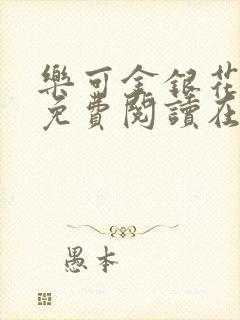 樂可金銀花
免費閱讀在
愚本